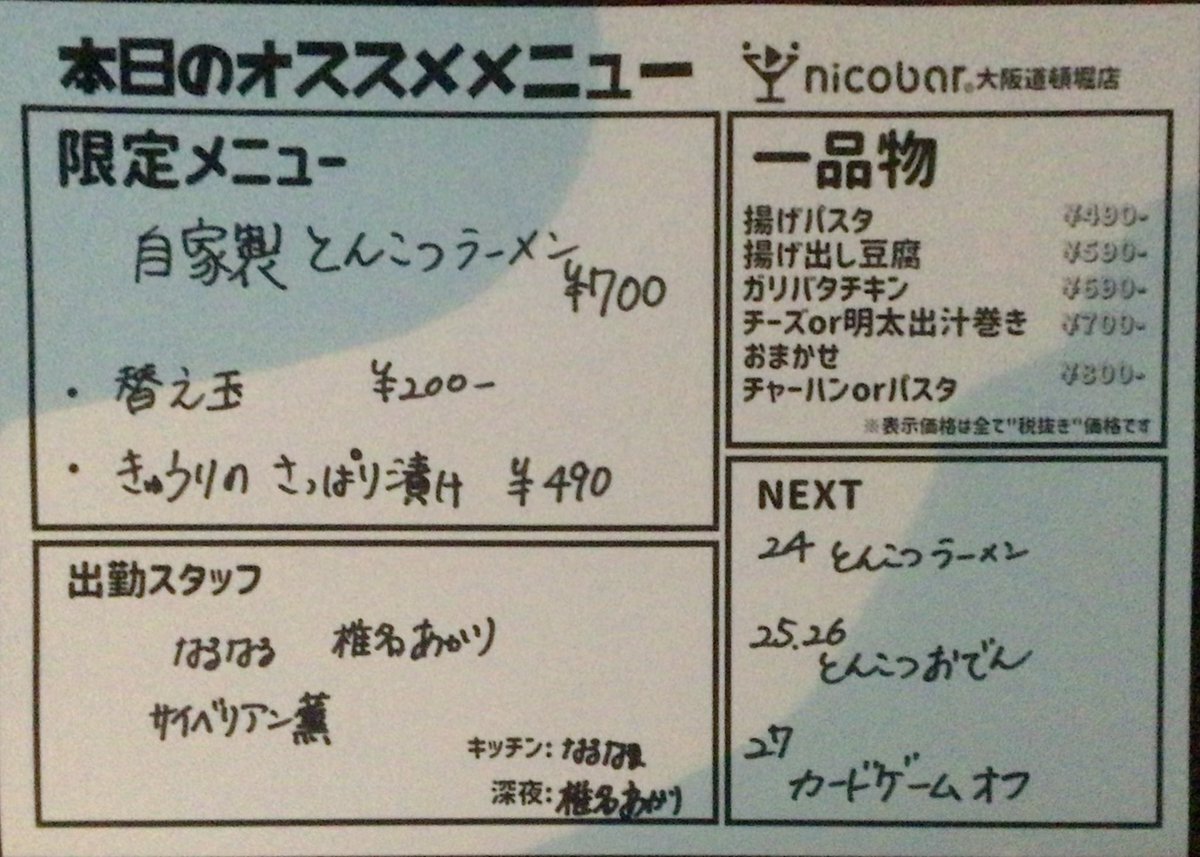 本日のオススメメニュー
nicobar® 大阪道頓堀店
限定メニュー
自家製 とんこつラーメン
¥700
・替え玉 ¥200-
・きゅうりの さっぱり漬け ¥490
一品物
揚げパスタ ¥490-
揚げ出し豆腐 ¥590-
ガリバタチキン ¥690-
チーズor明太出汁巻き ¥700-
おまかせ
チャーハンorパスタ ¥800-
※表示価格は全て"税抜き"価格です
出勤スタッフ
なるなる 椎名あかり
サイベリアン薫
キッチン: なるなる
深夜: 椎名あかり
NEXT
24 とんこつラーメン
25.26
とんこつおでん
27
カードゲームオフ